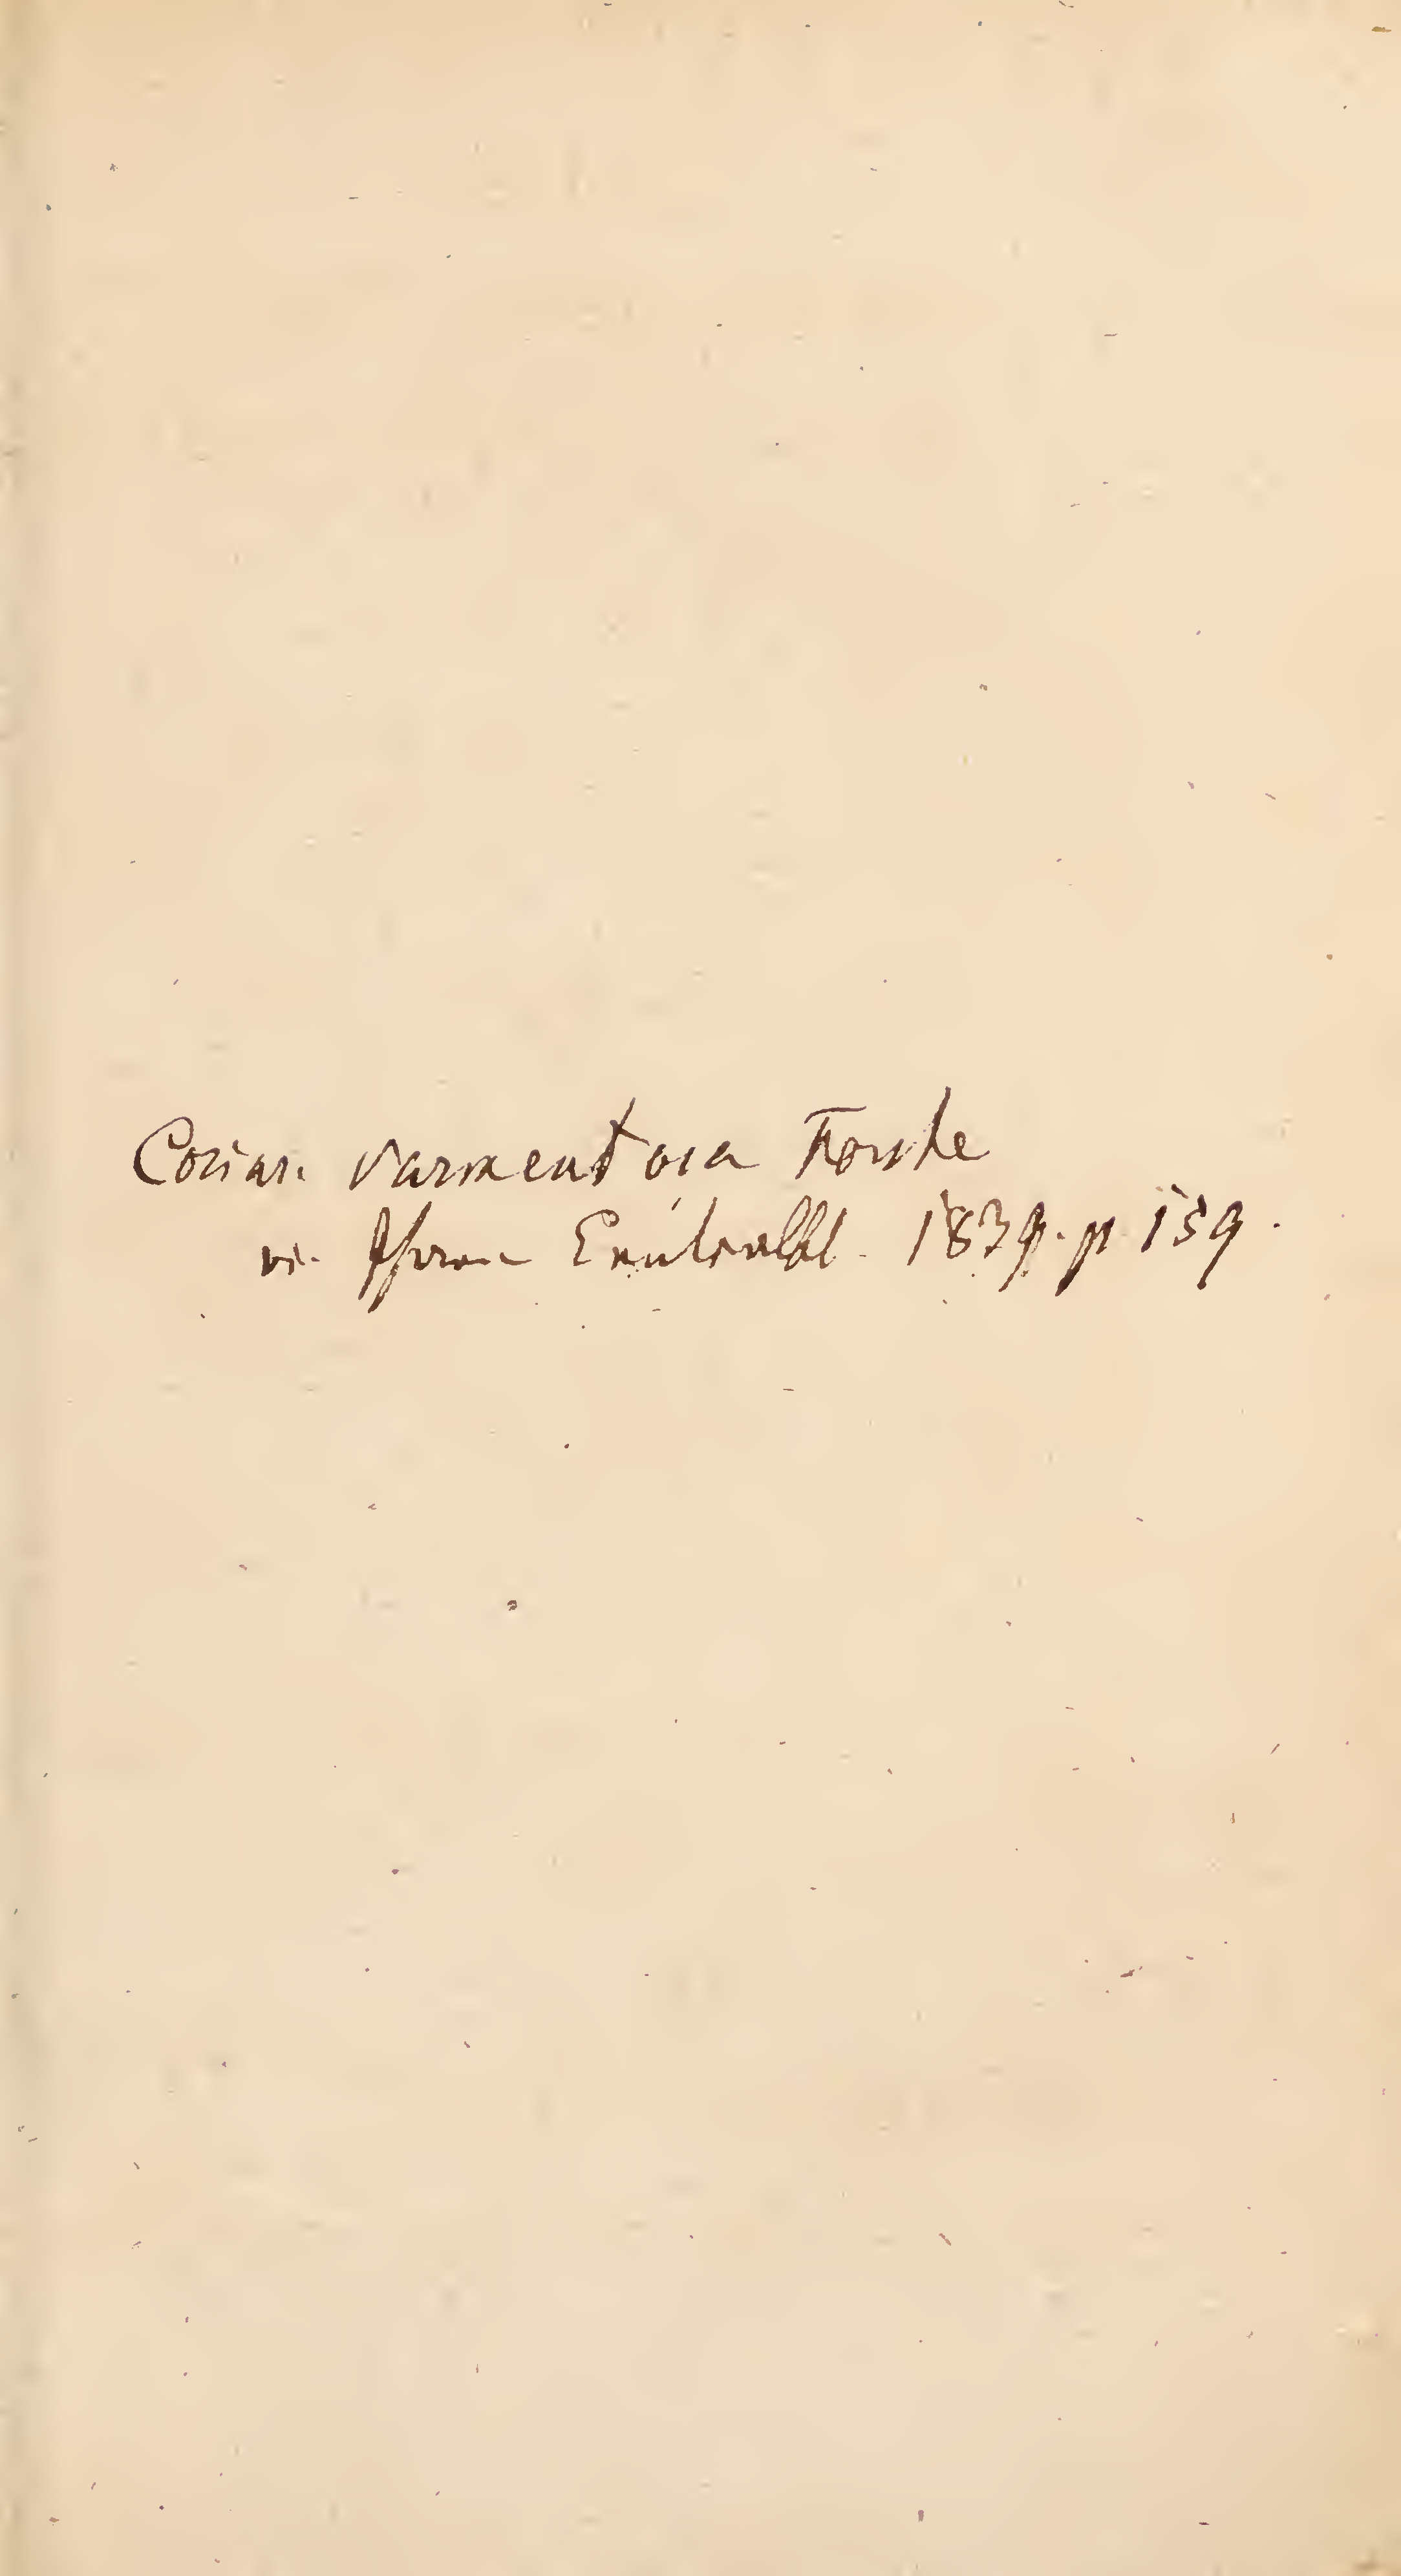 Coriar. sarmentosa Forste
Centralbl. 1839. p 159.